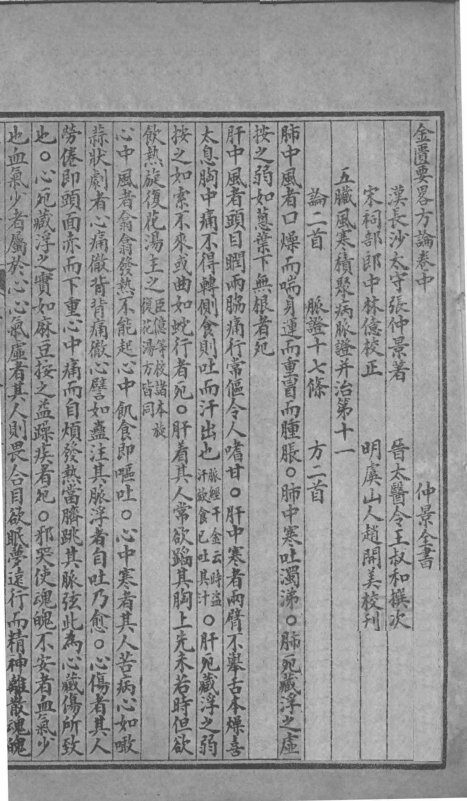 金匱要畧方論卷中　仲景全書
漢長沙太守張仲景著　晉太醫令王叔和撰次
宋祠部郎中林億校正　明虞山人趙開美校刊
五臟風寒積聚病脈證并治第十一
論二首　脈證十七條　方二首
肺中風者口燥而喘身運而重冒而腫脹○肺中寒吐濁涕○肺死藏浮之虛
按之弱如葱葉下無根者死
肝中風者頭目瞤兩脇痛行常傴令人嗜甘○肝中寒者兩臂不舉舌本燥喜
太息胸中痛不得轉側食則吐而汗出也脈經千金云時盜汗欬食已吐其汁○肝死藏浮之弱
按之如索不來或曲如蛇行者死○肝着其人常欲蹈其胸上先未苦時但欲
飲熱旋復花湯主之臣億等校諸本旋復花湯方皆同
心中風者翕翕發熱不能起心中飢食即嘔吐○心中寒者其人苦病心如噉
蒜狀劇者心痛徹背背痛徹心譬如蠱注其脈浮者自吐乃愈○心傷者其人
勞倦即頭面赤而下重心中痛而自煩發熱當臍跳其脈弦此為心藏傷所致
也○心死藏浮之實如麻豆按之益躁疾者死○邪哭使魂魄不安者血氣少
也血氣少者屬於心心氣虛者其人則畏合目欲眠夢遠行而精神離散魂魄